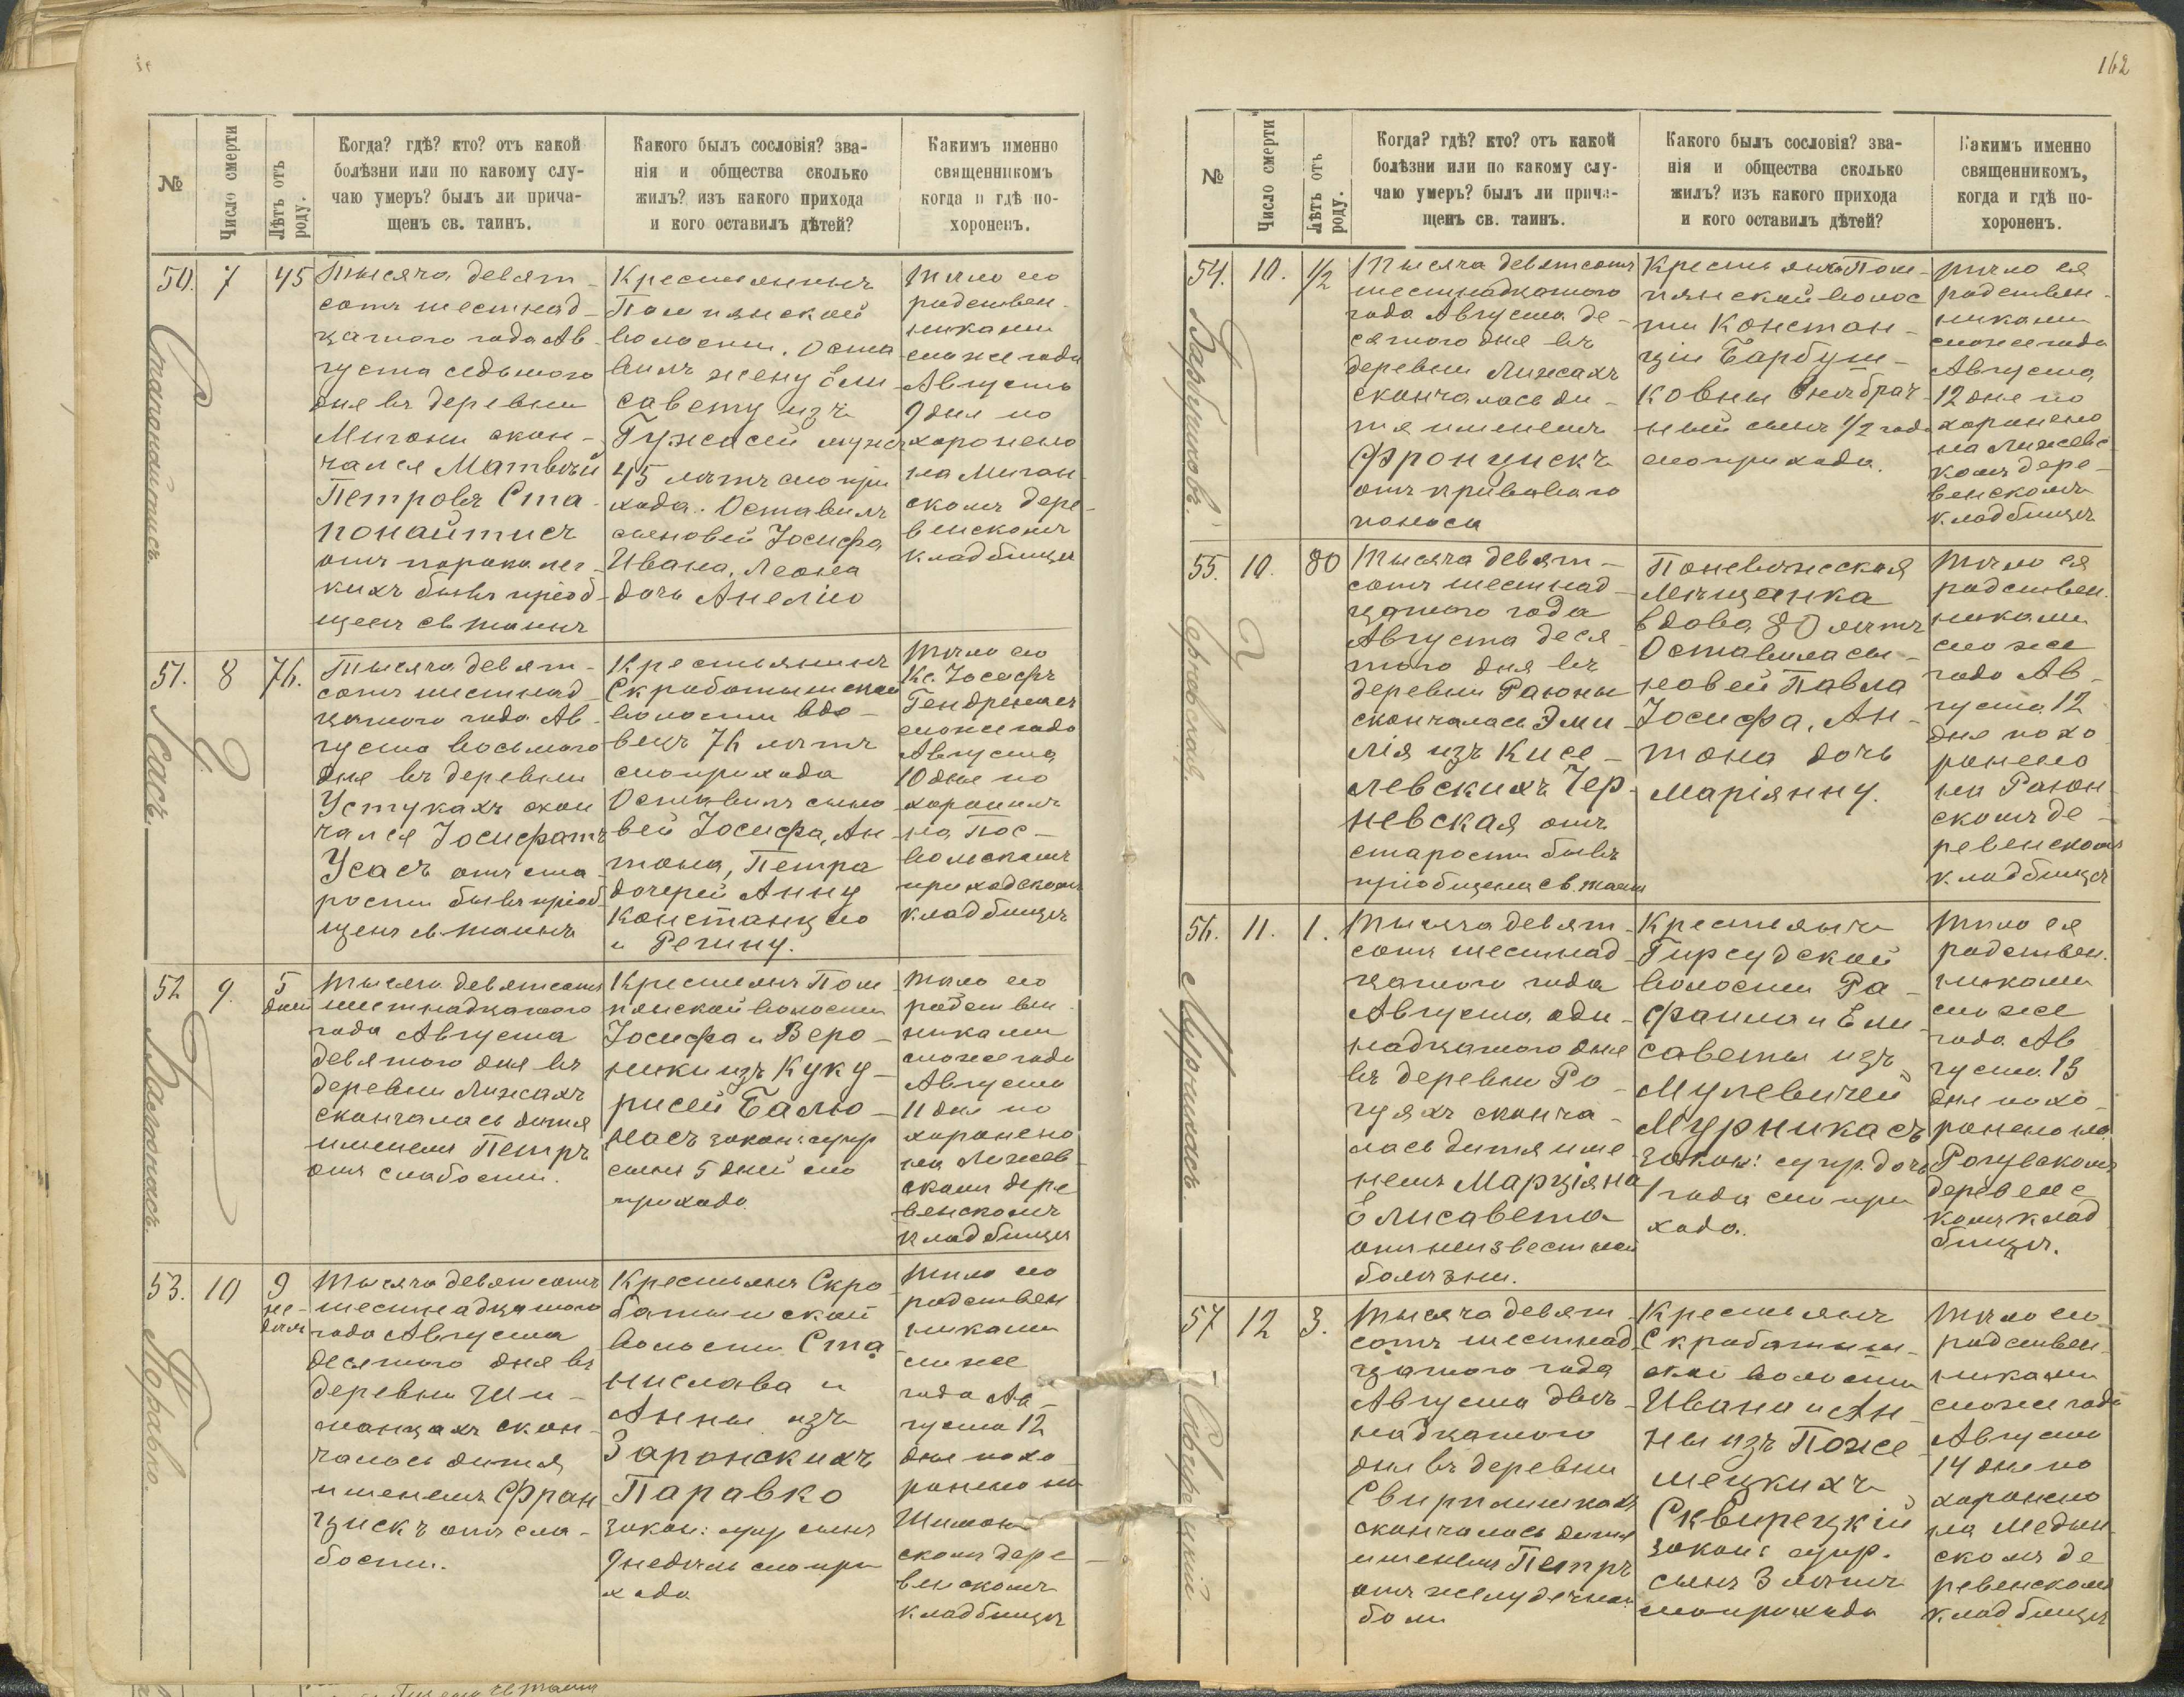 №
Число смерти
Лѣтъ отъ роду.
Когда? гдѣ? кто? отъ какой
болѣзни или по какому слу-
чаю умеръ? былъ ли прича-
щенъ св. таинъ.
Какого былъ сословія? зва-
нія и общества сколько
жилъ? изъ какого прихода
и кого оставилъ дѣтей?
Какимъ именно
священникомъ
когда и гдѣ по-
хороненъ.
50.
7
45
Тысяча девят-
сотъ шестнад-
цатого года Ав-
густа седьмого
дня въ деревни
Мигони скон-
чался Матвѣй
Петровъ Ста-
понайтисъ
отъ порока лег-
кихъ бывъ пріоб-
щенъ св таинъ
Крестьянинъ
Помпянской
волости. Оста
вилъ жену Ели
савету изъ
45 лѣтъ сего при
хода. Оставилъ
сыновей Іосифа
Ивана, Леона
дочь Анелію
тѣло его
родствен-
никами
сего же года
Августа
9 дня по
хоронено
на Мигон
скомъ дере-
венскомъ
кладбищѣ
51.
8
76.
Усасъ.
Тысяча девят-
сотъ шестнад-
цатого года Ав-
густа восьмого
дня въ деревни
Устукахъ скон
чался Іосифатъ
Усасъ отъ ста-
рости бывъ пріоб
щенъ св таинъ
Крестьянинъ
Скработишской
волости вдо-
вецъ 76 лѣтъ
сего прихода
Оставилъ сыно
вей Іосифа, Ан-
тона, Петра
дочерей Анну
Констанцію
и Регину.
тѣло его
Кс. Іосифъ
сего же года
Августа
10 дня по
хоронилъ
на Пос-
вольскомъ
приходскомъ
кладбищѣ
52
9.
5
дней
Тысяча девятсотъ
шестнадцатого
года Августа
девятого дня въ
деревни Лижахъ
скончалась дитя
именемъ Петръ
отъ слабости.
Крестьянъ Пом
пянской волости
Іосифа и Веро-
ники изъ Куку-
рисей Балю-
насъ закон: супр
сынъ 5 дней сего
прихода
тѣло его
родствен
никами
сего же года
Августа
11 дня по
хоронено
на Лижев
скомъ дере
венскомъ
кладбищѣ
53.
10
9
не-
дѣль
Паравко.
Тысяча девятсотъ
шестнадцатого
года Августа
десятого дня въ
деревни Ши-
манцахъ скон-
чалась дитя
именемъ Фран
цискъ отъ сла-
бости.
Крестьянъ Скро
батишской
волости Ста
нислава и
Анны изъ
Заронскихъ
Паравко
закон: супр сынъ
9 недѣль сего при
хода
тѣло его
родствен
никами
сего же
года Ав-
густа 12
дня похо
ронено на
Шиман
скомъ дере-
венскомъ
кладбищѣ
162
№
Число смерти
Лѣтъ отъ роду.
Когда? гдѣ? кто? отъ какой
болѣзни или по какому слу-
чаю умеръ? былъ ли прича-
щенъ св. таинъ.
Какого былъ сословія? зва-
нія и общества сколько
жилъ? изъ какого прихода
и кого оставилъ дѣтей?
Какимъ именно
священникомъ,
когда и гдѣ по-
хороненъ.
54.
10.
1/2
Тысяча девятсотъ
шестнадцатого
года Августа де-
сятого дня въ
деревни Лижахъ
скончалась ди-
тя именемъ
Францискъ
отъ кроваваго
поноса
Крестьянъ Пом-
пянской волос
ти Констан-
ціи Барбуш-
ковны внѣбрач-
ный сынъ 1/2 года
сего прихода.
тѣло ея
родствен-
никами
сего же года
Августа
12 дня по
хоронено
на Лижевс
комъ дере-
венскомъ
кладбищѣ
55.
10.
80
Тысяча девят-
сотъ шестнад-
цатого года
Августа деся-
того дня въ
деревни Раюны
скончалась Эми-
лія изъ Кисе-
левскихъ Чер-
невская отъ
старости бывъ
пріобщена св. таинъ
Поневѣжеская
мѣщанка
вдова 80 лѣтъ
Оставила сы-
новей Павла
Іосифа, Ан-
тона дочь
Маріянну.
тѣло ея
родствен.
никами
сего же
года Ав-
густа 12
дня похо
ронено
на Раюн
скомъ де-
ревенскомъ
кладбищѣ
56.
11.
1.
Мурникасъ.
Тысяча девят-
сотъ шестнад-
цатого года
Августа оди-
надцатого дня
въ деревни Ро-
гуяхъ сконча-
лась дитя име
немъ Марціяна
Елисавета
отъ неизвестной
болѣзни.
Крестьянъ
Гирсудской
волости Ра-
фаила и Ели-
саветы изъ
Мулевичей
Мурникасъ
закон: супр. дочь
1 года сего при
хода.
тѣло ея
родствен.
никами
сего же
года Ав
густа 13
дня похо-
ронено на
Рогувскомъ
деревенс
комъ клад
бищѣ.
57
12
3.
Тысяча девят-
сотъ шестнад-
цатого года
Августа двѣ-
надцатого
дня въ деревни
Свирплишкахъ
скончалась дитя
именемъ Петръ
отъ желудечной
боли
Крестьянъ
Скработиш-
ской волости
Ивана и Ан-
ны изъ Поже
мецкихъ
Сквирецкій
закон: супр.
сынъ 3 лѣтъ
сего прихода
тѣло его
родствен-
никами
сего же года
Августа
14 дня по
хоронено
на Медин
скомъ де
ревенскомъ
кладбищѣ